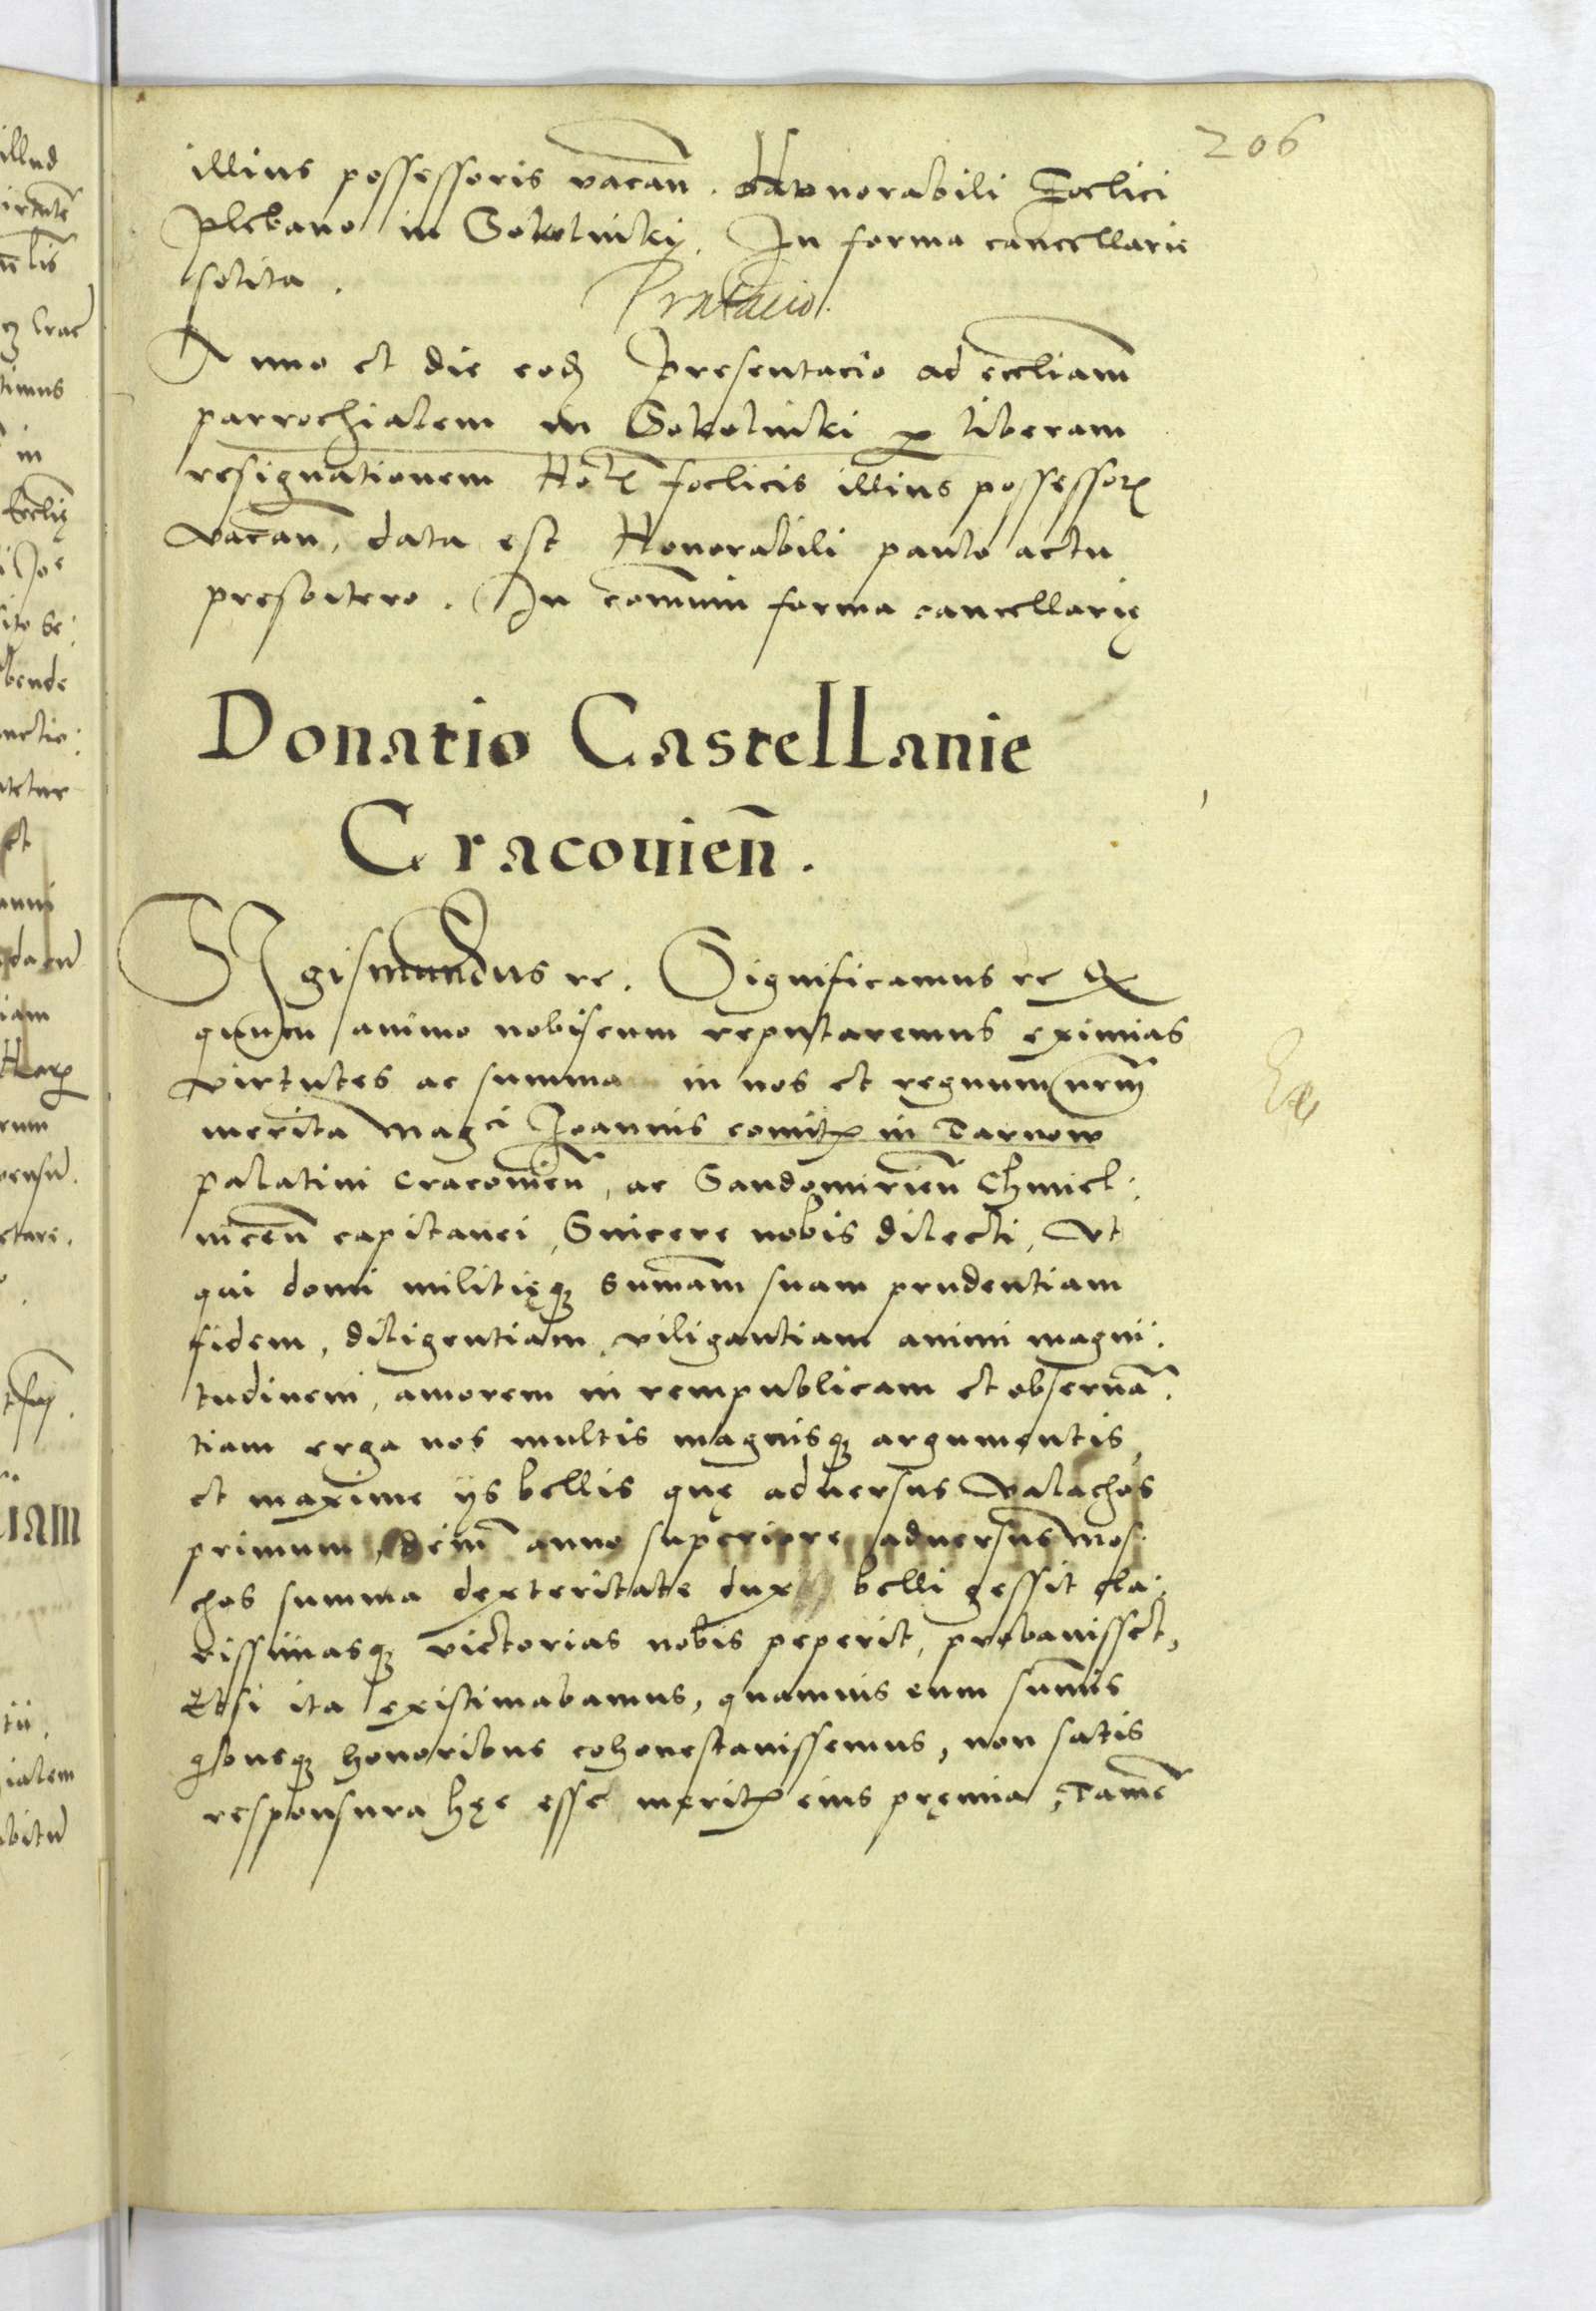 206
illius possessoris vacan̄. Honorabili Foelici
plebano in Sokolniky. In forma cancellarie
solita.
Pn̄tacio.
Anno et die eod Presentacio ad eccliam
parrochialem in Sokolniki p liberam
resignationem Hoʳᶩ foelicis illius possessorꝭ
vacan̄, data est Honorabili paulo actu
presbitero. In com̄uni forma cancellarię
Donatio Castellanie
Cracouien̄.
Sigismundus rc. Significamus rc Q
quum animo nobiscum reputaremus eximias
virtutes ac summa in nos et regnum nrm̄
merita Magci Joannis comitꝭ in Tarnow
palatini Cracouien̄, ac Sandomirien̄ Chmiel:
nicen̄ capitanei, Sincere nobis dilecti, Vt
qui domi militięqꝫ sum̄am suam prudentiam
fidem, diligentiam, viligantiam animi magni:
tudinem, amorem in rempublicam et obseruā:
tiam erga nos multis magnisqꝫ argumentis,
et maxime ijs bellis quę aduersus Valachos
primum, dein̄ anno superiore aduersus Mos:
chos summa dexteritate dux belli gessit cla:
rissimasqꝫ victorias nobis peperit, probauisset,
Etsi ita existimabamus, quamuis eum sum̄is
qbusqꝫ honoribus cohonestauissemus, non satis
responsura hęc esse meritꝭ eius pręmia, Tamē